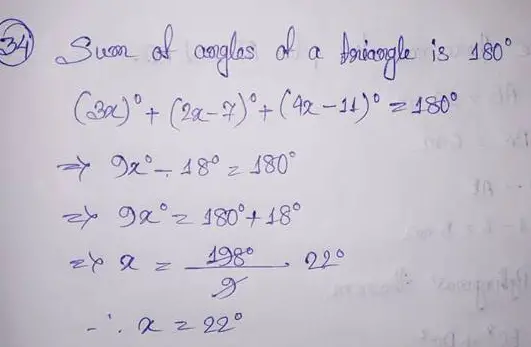 34 Sum of angles of a triangle is 180°
(3x)° + (2x-7)° + (4x-11)° = 180°
⇒ 9x° - 18° = 180°
⇒ 9x° = 180° + 18°
⇒ x = 198°/9 . 22°
∴ x = 22°